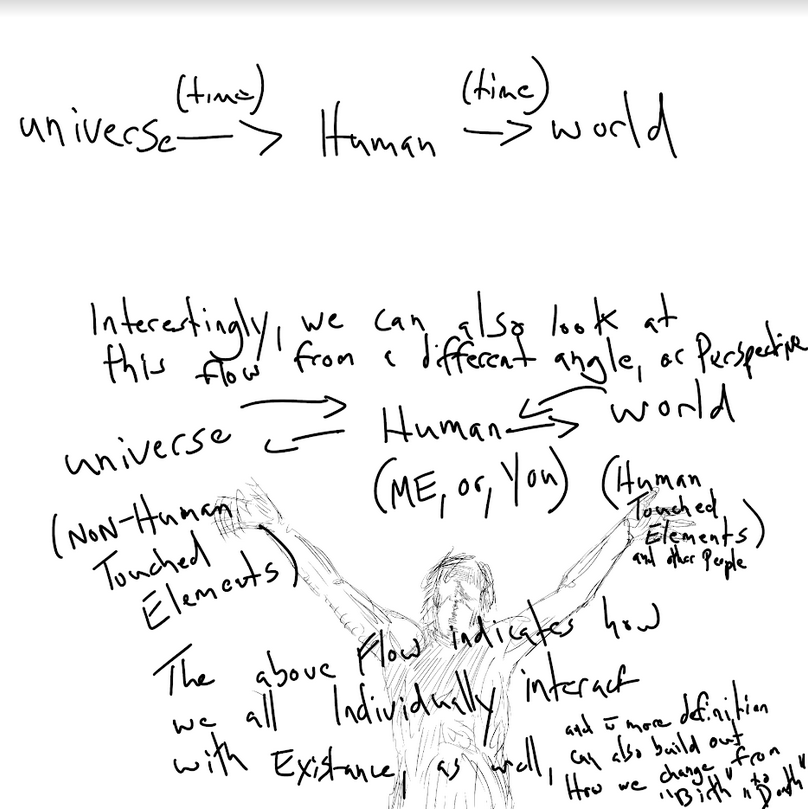 (time) (time)
universe → Human → world
Interestingly, we can also look at
this flow from a different angle, or Perspective
universe Human world
(NON-Human Touched Elements)
(ME, or, You)
(Human Touched Elements and other People)
The above Flow indicates how
we all Individually interact
with Existance, as well,
and more definition
can also build out
How we change from
"Birth" to "Death"